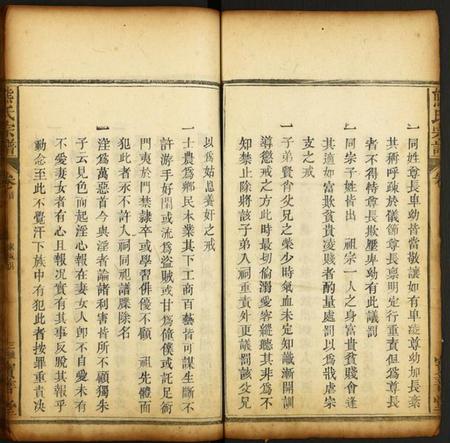 熊氏宗譜
卷首
一同姓尊長卑幼皆當敬讓如有卑幼加長棄
其稱呼疎於儀節尊長稟明定行重責但爲尊長
者不得恃尊長欺壓卑幼有此議罰
一同宗子姓皆出 祖宗一人之身富貴貧賤會逢
其適如富欺貧貴凌賤者酌量處罰以爲戕虐宗
支之戒
一子弟賢肖父兄之榮少時氣血未定知識漸開訓
導懲戒之方此時最切偷溺愛客縱聽其非爲不
知禁止除將該子弟入祠重責外更議罰該父兄
以爲姑息養奸之戒
一士農爲鄉民本業其下工商百藝皆可謀生斷不
許游手好閒或流爲盜賊或甘爲僮僕或託足衙
門夷於門禁隸卒或學習俳優不顧 祖先體面
犯此者永不許入祠同視譜牒除名
一淫爲萬惡首今與淫者論諸利害皆所不顧獨朱
子云見色而起淫心報在妻女人卽不自愛未有
不愛妻女者有心且報况實有其事反脫其報乎
動念至此不覺汗下族中有犯此者按罪重責决
熊氏宗譜
卷首